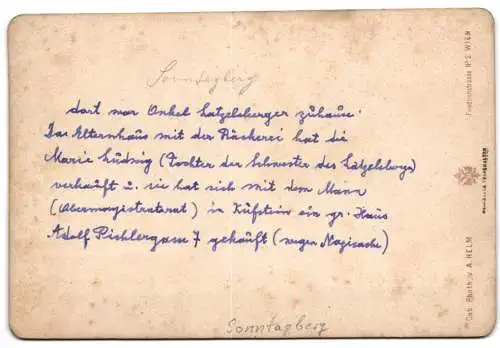 Sonntagberg
dort war Onkel Latzelsberger zuhause.
Das Elternhaus mit der Bäckerei hat die
Marie Ludwig (Tochter der Schwester des Latzelsberger
verkauft u. sie hat sich mit dem Mann
(Obermagistratsrat) in Kufstein ein gr. Haus
Adolf Pichlergasse 7 gekauft (wegen Nazisache)
Sonntagberg
Cab. Photh. v. A. HELM
Friedrichstrasse No 2 WIEN